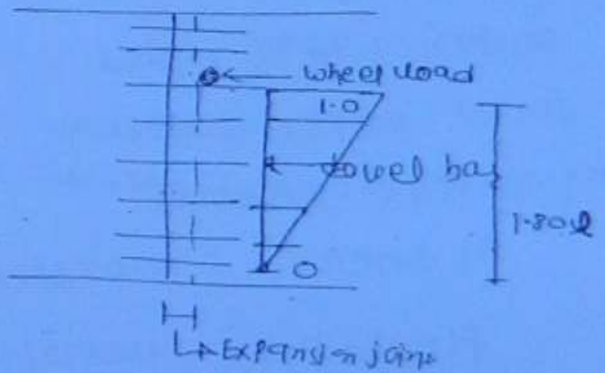 wheel load
1.0
Dowel bar
1.80 l
0
Expansion joint